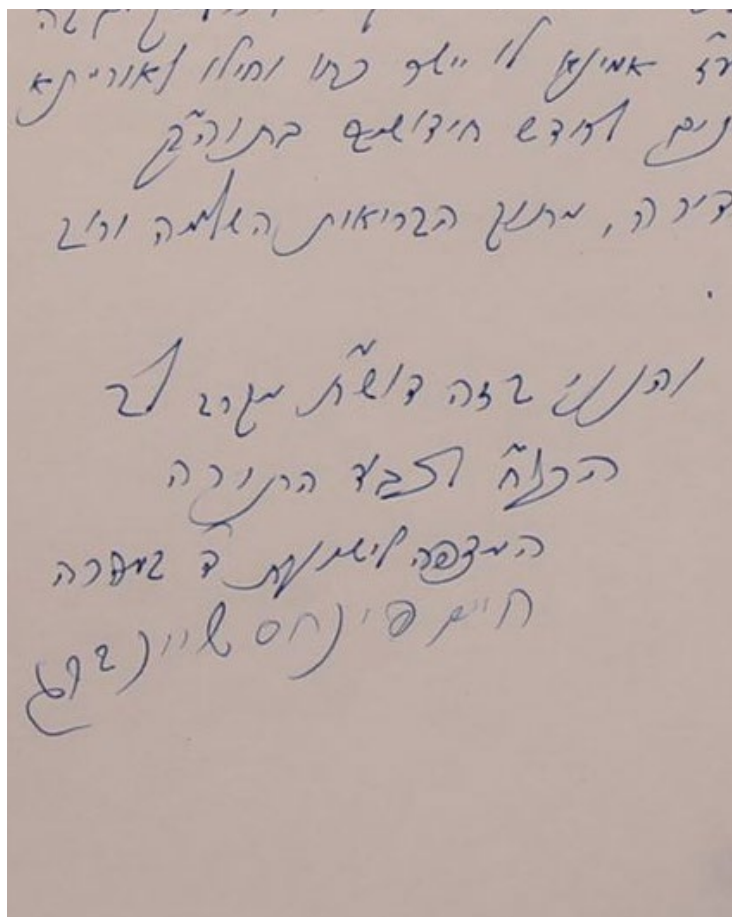 אמינא לו יישר כחו וחילו לאורייתא
לחדש חידושים בתוה"ק
מתוך הבריאות השלמה ורוב
והנני בזה דוש"ת מקרב לב
הכו"ח לכבוד התורה
המצפה לישועת ד' במהרה
חיים פינחס שיינברג